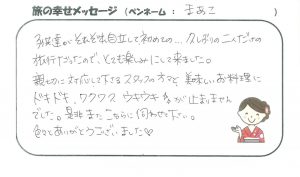 旅の幸せメッセージ（ペンネーム： まあこ ）
子供達が それぞれ自立して初めての… 久しぶりの二人だけの
旅行だったので、とても楽しみにして来ました。
親切に対応して下さるスタッフの方々と、美味しいお料理に
ドキドキ、ワクワク ウキウキ が止まりません
でした。是非また こちらに 伺わせて下さい。
色々とありがとうございました♡